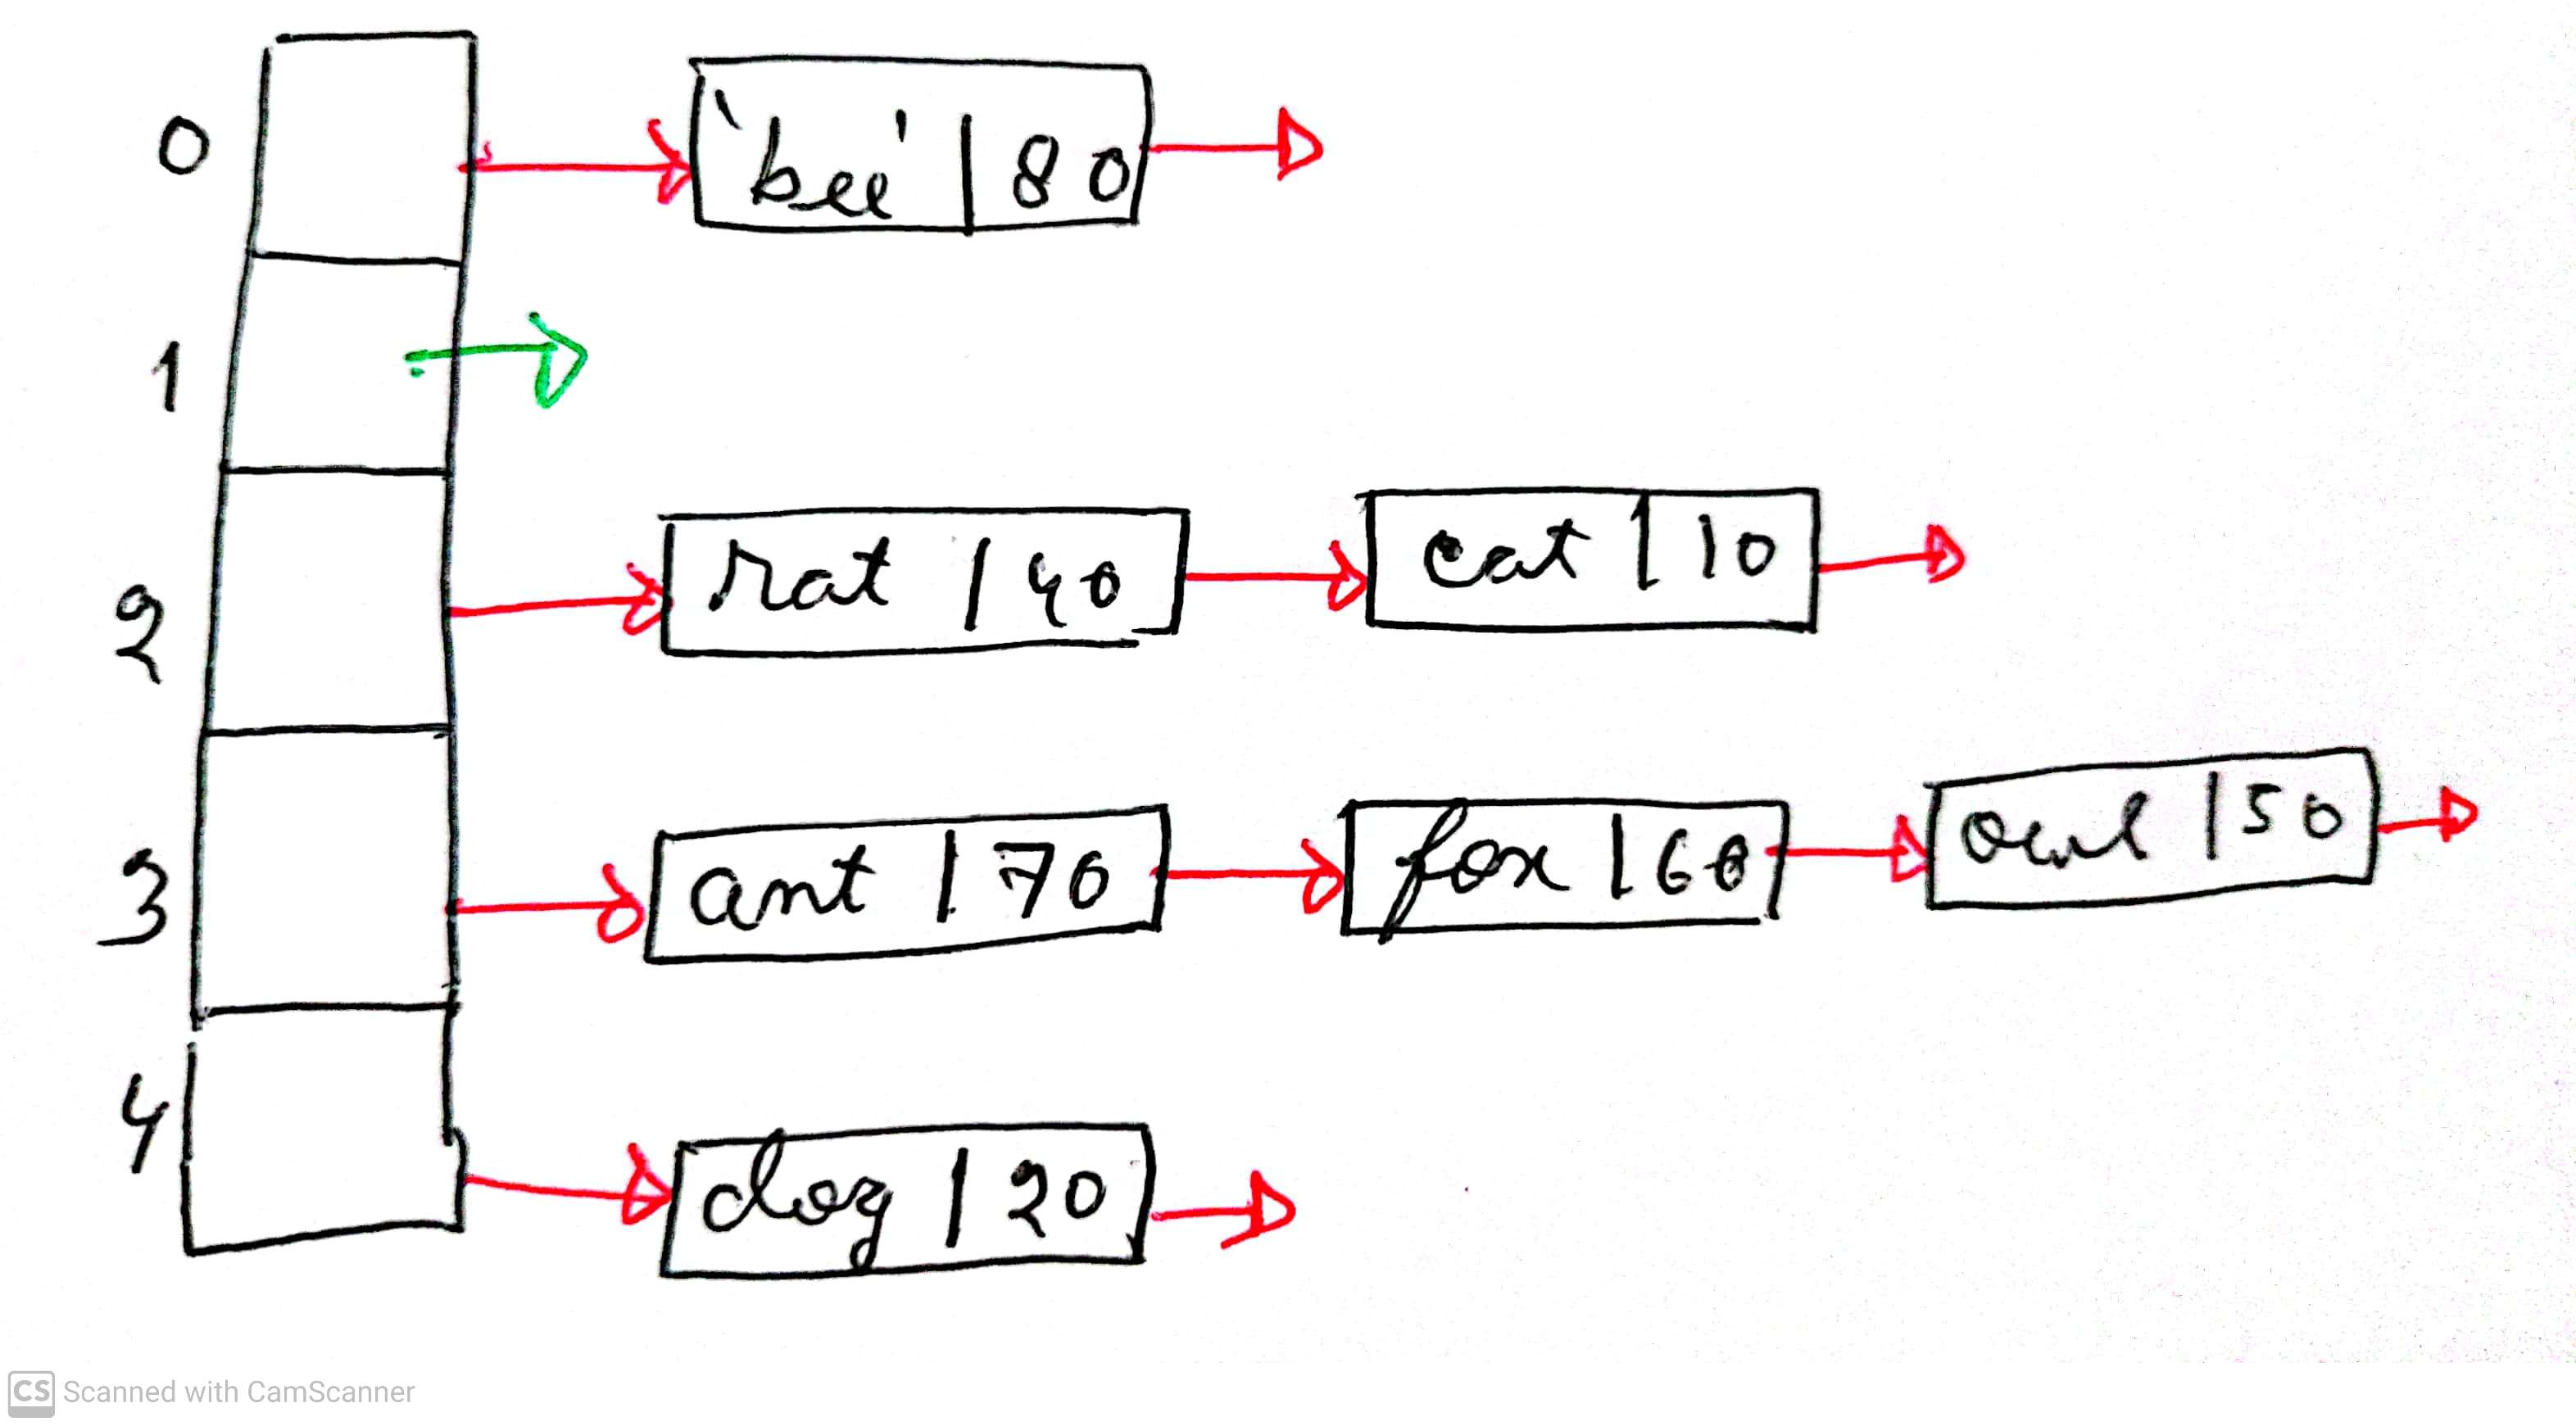 0 'bee' | 80
1
2 rat | 40 cat | 10
3 ant | 70 fox | 60 owl | 50
4 dog | 20
CS Scanned with CamScanner